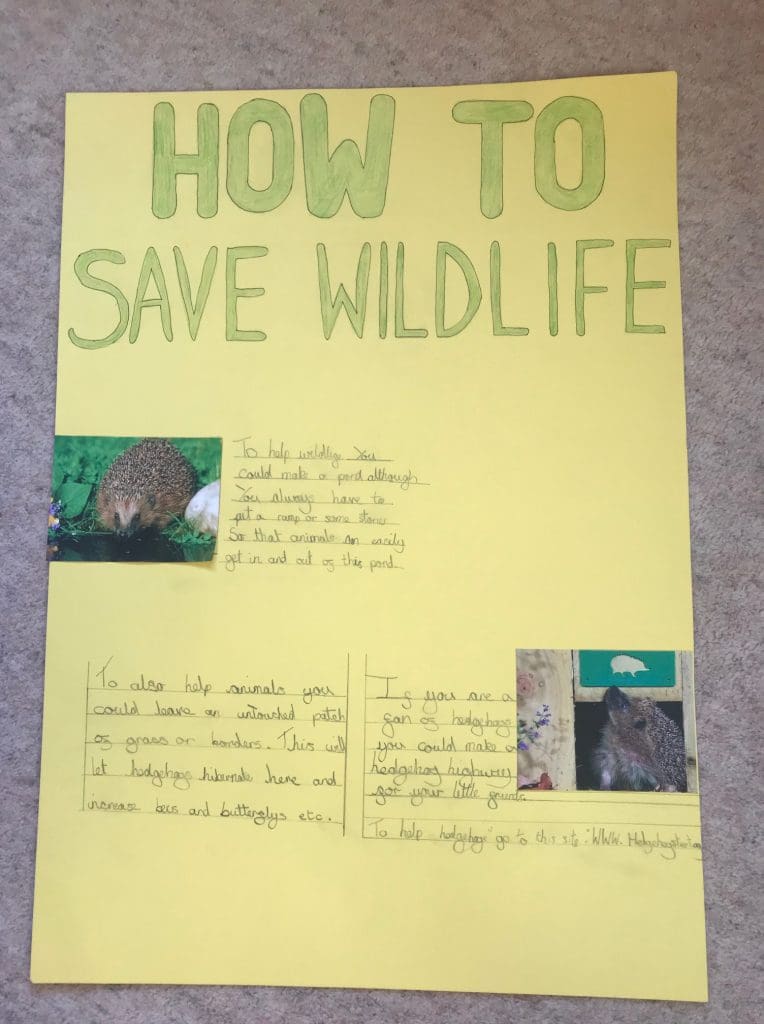 HOW TO
SAVE WILDLIFE
To help wildlife You
could make a pond although
You always have to
put a ramp or some stones
So that animals can easily
get in and out of this pond.
To also help animals you
could leave an untouched patch
of grass or borders. This will
let hedgehogs hibernate here and
increase bees and butterflys etc.
If you are a
fan of hedgehogs
you could make a
hedgehog highway
for your little
To help hedgehogs go to this site: WWW.